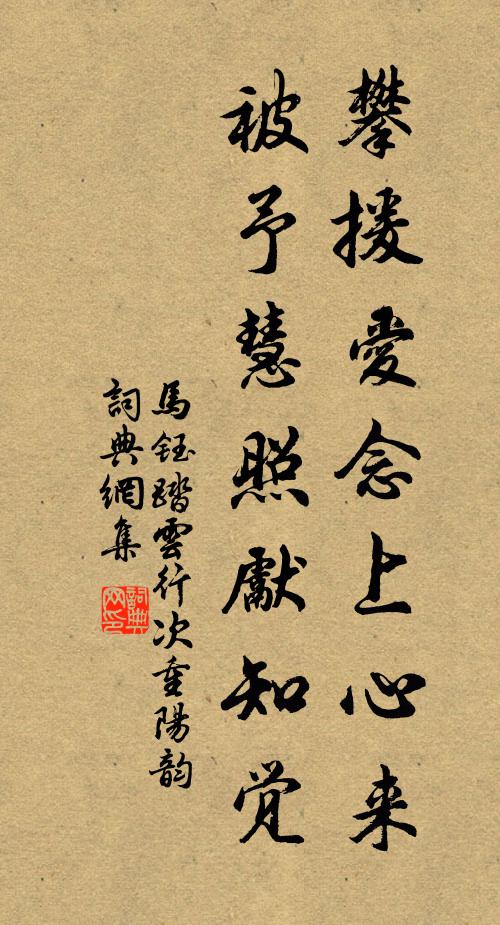 攀援愛念上心来
被予慧照獻知觉
馬鈺踏雲行次重陽韵
詞典網集
詞典网印